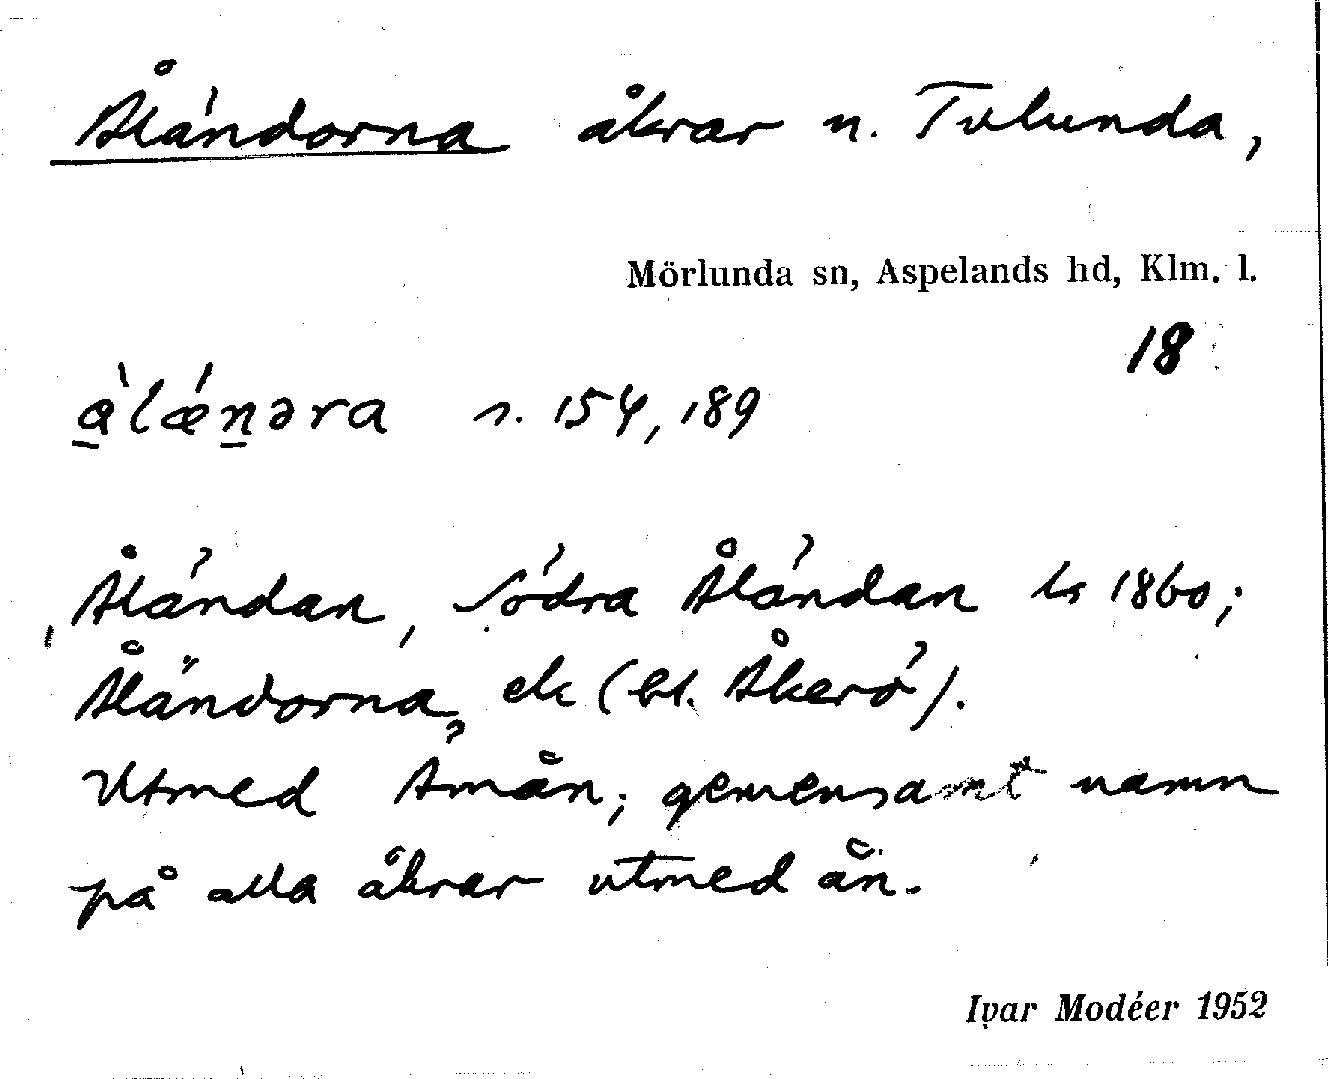 Åländorna åkrar n. Tulunda,
Mörlunda sn, Aspelands hd, Klm. l.
18
à̠lǽn̠əra s. 154, 189
Åländan, Södra Åländan ls 1860;
Åländorna ek (bl. Åkerö).
Utmed Åmån; gemensamt namn
på alla åkrar utmed ån.
Ivar Modéer 1952